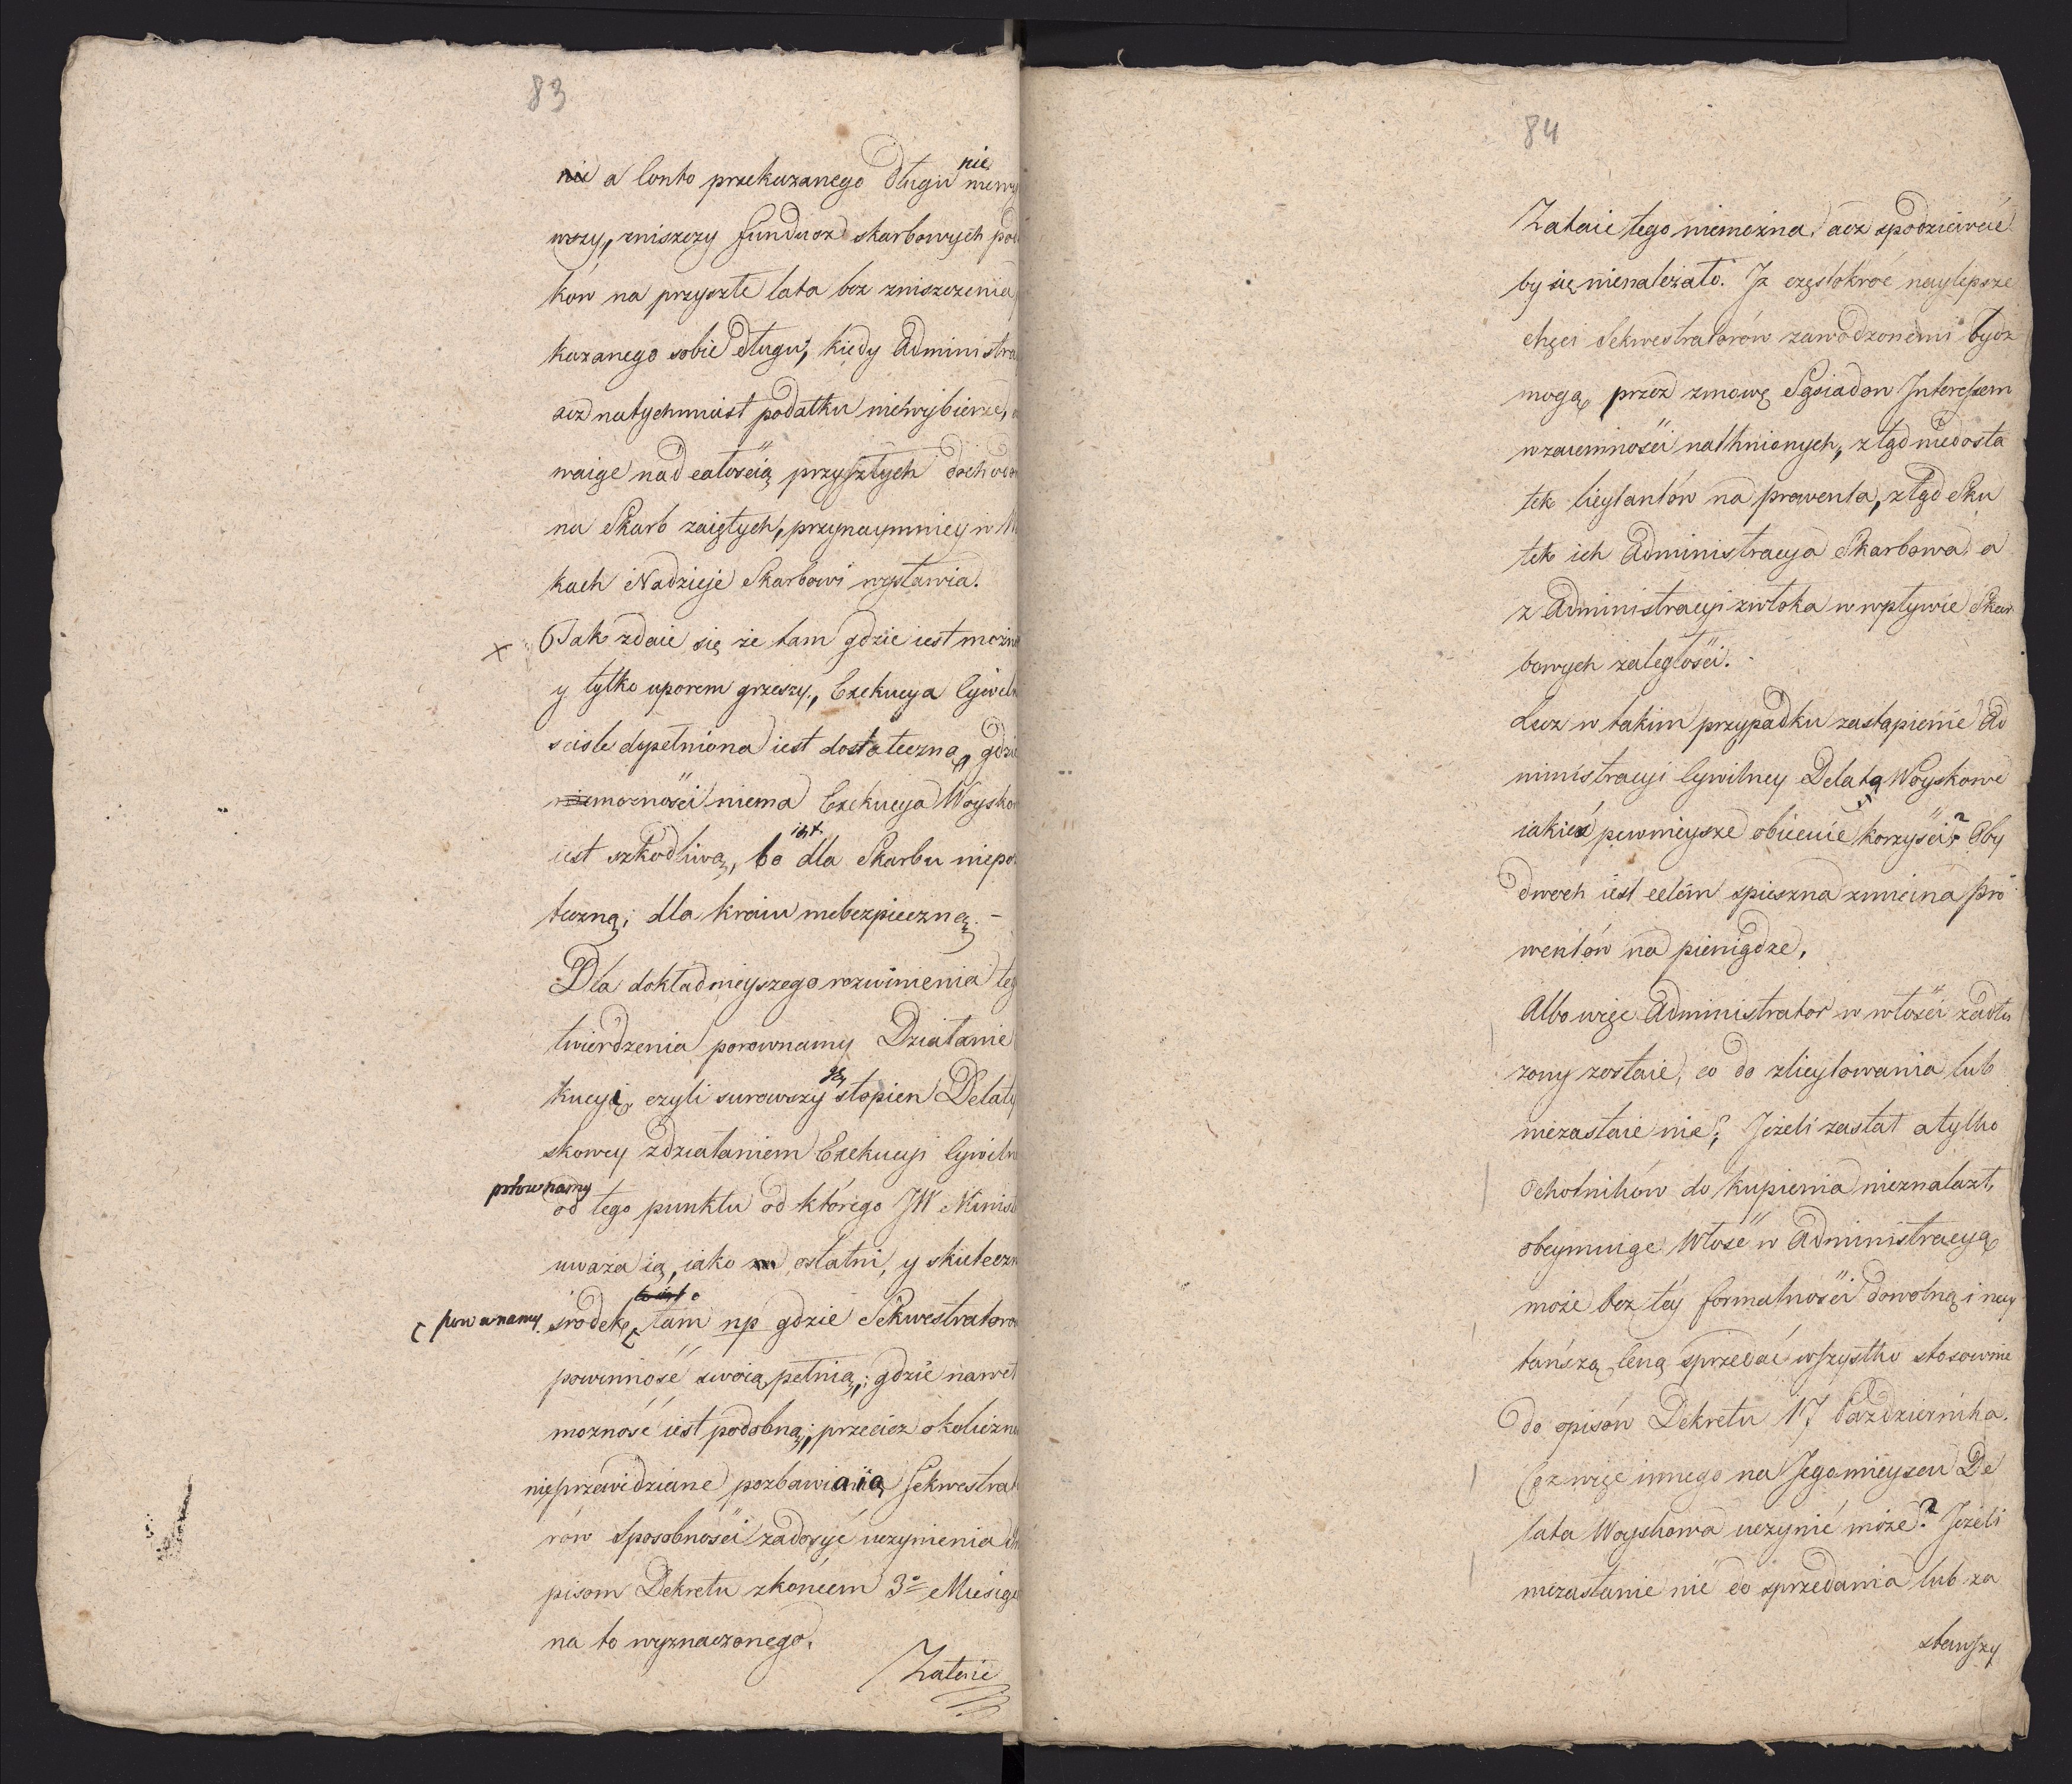 83
nie
a Conto przekazanego długu niewy
wszy, zniszczy fundusz skarbowych pod
ków na przyszłe lata bez zniszczenia
kazanego sobie długu; kiedy Administra
acz natychmiast podatku niewybierze,
waiąc nad całością przyszłych dochodó
na Skarb zaiętych, przynaymniey w
kach Nadzieje Skarbowi wystawia.
x Tak zdaie się że tam gdzie iest możno
y tylko uporem grzeszy, Exekucya Cywiln
scisle dopełniona iest dostateczną, gdzie
możności niema Exekucya Woysko
iest
iest szkodliwą, bo dla Skarbu niepo
teczną; dla kraiu niebezpieczną. –
Dla dokładnieyszego rozwinienia teg
twierdzenia porownamy Działanie
kucyi, czyli surowszy stopien Delaty
skowey zdziałaniem Exekucyi Cywiln
porownamy
od tego punktu od którego JW Minist
uważa ią, iako ostatni, y skuteczn
to iest
porownamy środek, tam np gdzie Sekwestratoro
powinność swoią pełnią; gdzie nawet
możność iest podobną; przecież okoliczno
nieprzewidziane pozbawiaią Sekwestrat
rów Sposobności zadosyć uczynienia
pisom Dekretu zkońcem 3º Miesiąc
na to wyznaczonego.
Zataic
84
Zataic tego niemożna, acz spodziewać
by się nienależało. Iż częstokroć naylepsze
chęci Sekwestratorów zawodzonemi bydz
mogą przez zmowę Sąsiadow Interessem
wzaiemności nathnionych, ztąd niedosta
tek licytantów na prowenta, ztąd Sku
tek ich Administracya Skarbowa, a
z Administracyi zwłoka w wpływie Skar
bowych zaległości. -
Lecz w takim przypadku zastąpienie Ad
ministracyi Cywilney Delatą Woyskową
iakież pewnieysze obiecuie korzyści? Oby
dwoch iest celem spieszna zmiana pro
wentów na pieniądze,
Albo więc Administrator w włości zadłu
żony zostaie, co do zlicytowania lub
niezastaie nic; Jeżeli zastał a tylko
Ochotników do kupienia nieznalazł,
obeymuiąc Włość w Administracyą
może bez tey formalności dowolną i nay
tańszą Ceną sprzedać wszystko stosownie
do opisów Dekretu 17 Października.
Coż więc innego na Jego mieyscu De
lata Woyskowa uczynić może? Jeżeli
niezastanie nic do sprzedania lub za
stawszy